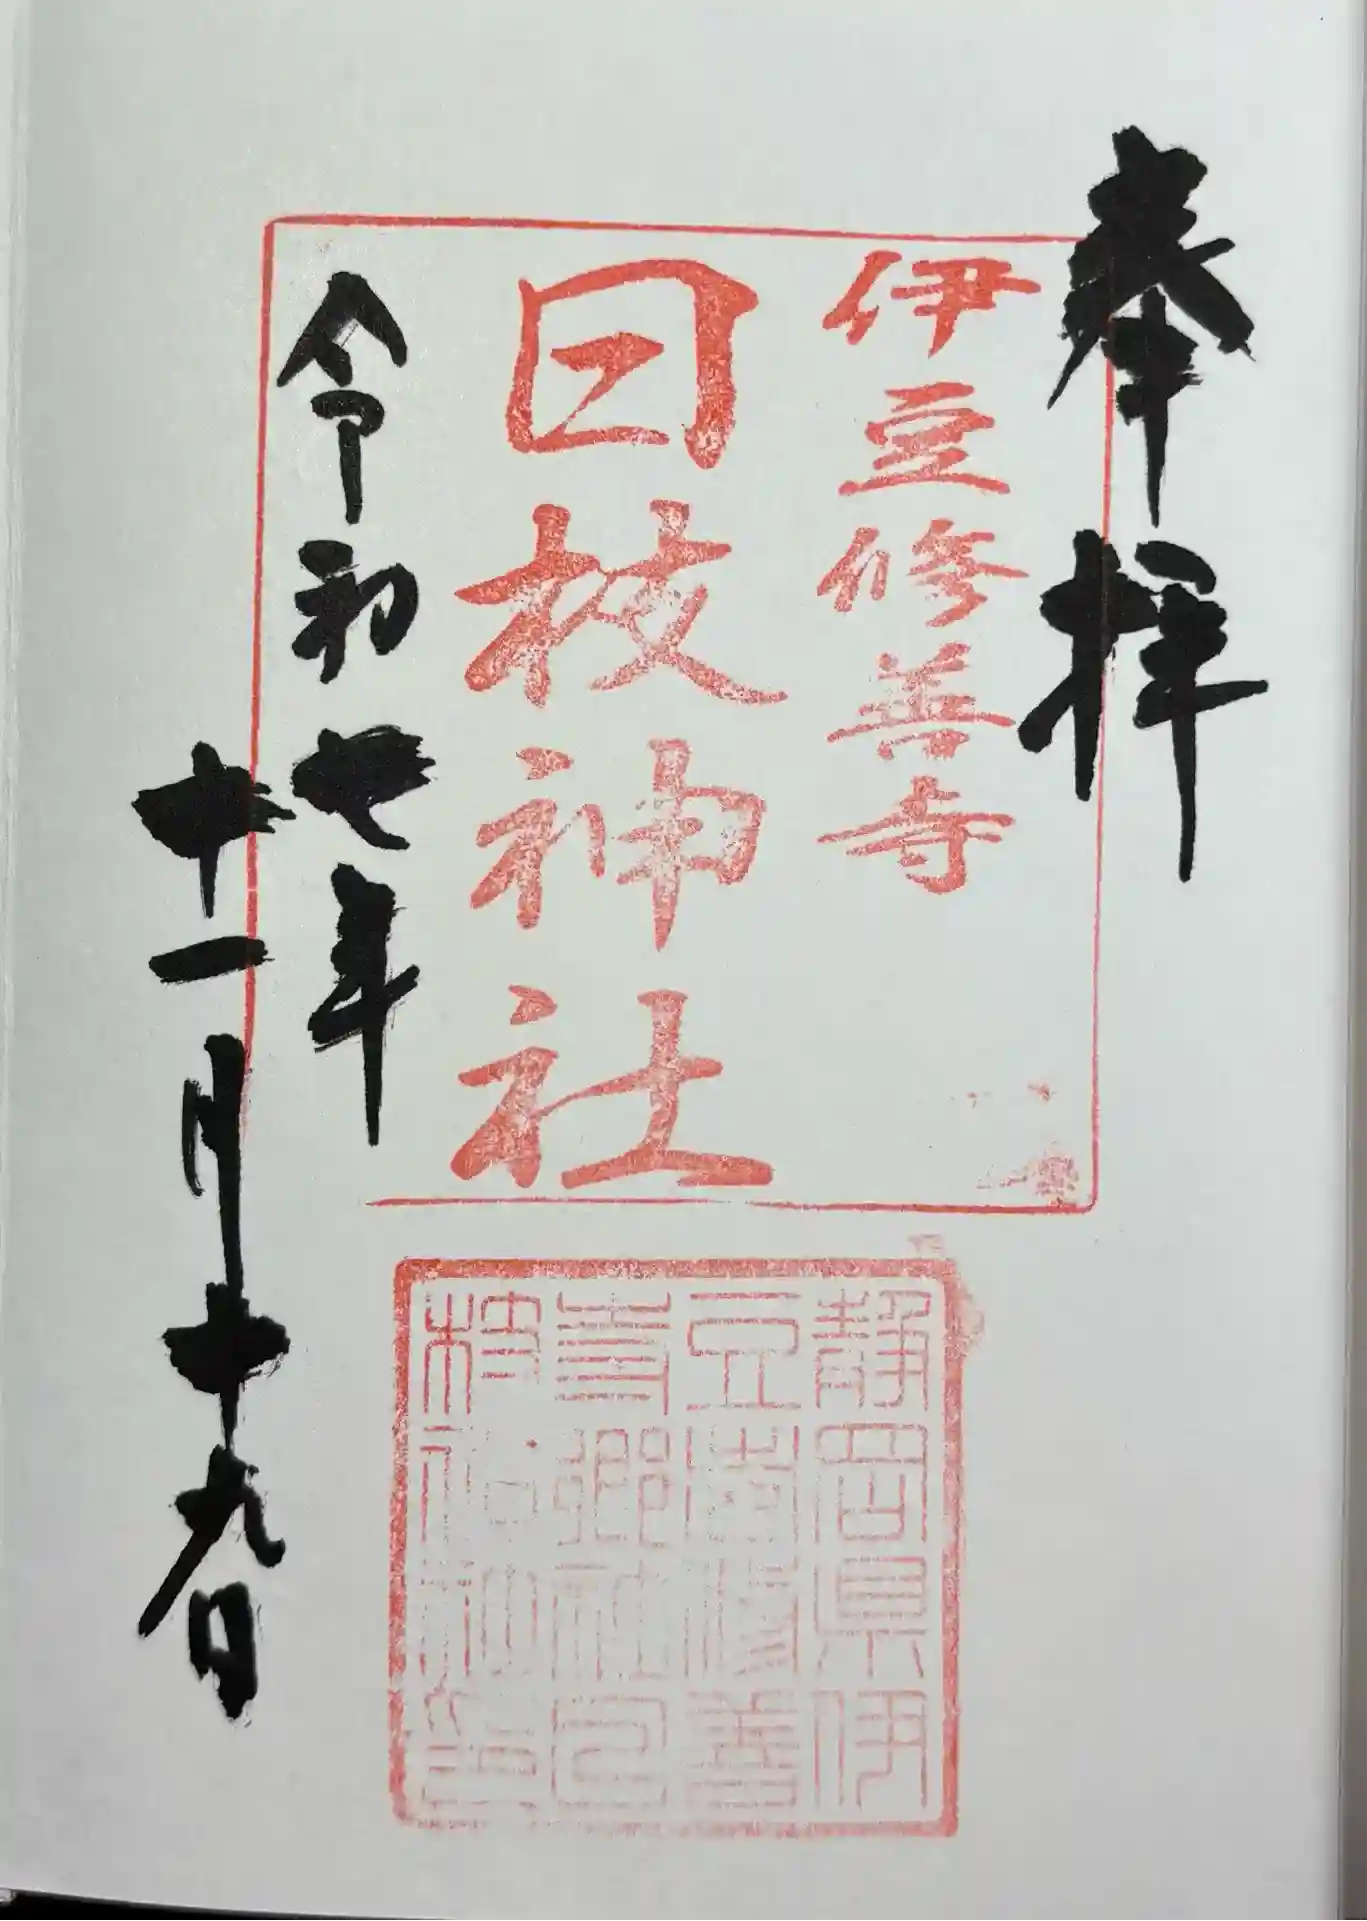 奉拝
伊豆修善寺
日枝神社
令和七年
十一月十九日
静岡県伊
豆修善
寺郷社日
枝神社印